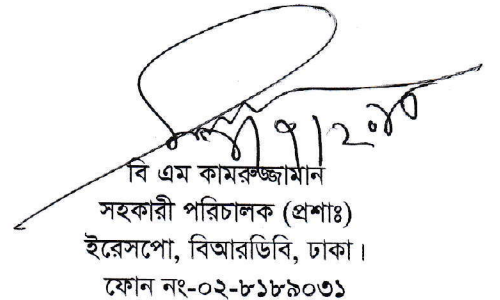 বি এম কামরুজ্জামান
সহকারী পরিচালক (প্রশাঃ)
ইরেসপো, বিআরডিবি, ঢাকা।
ফোন নং-০২-৮১৮৯০৩১